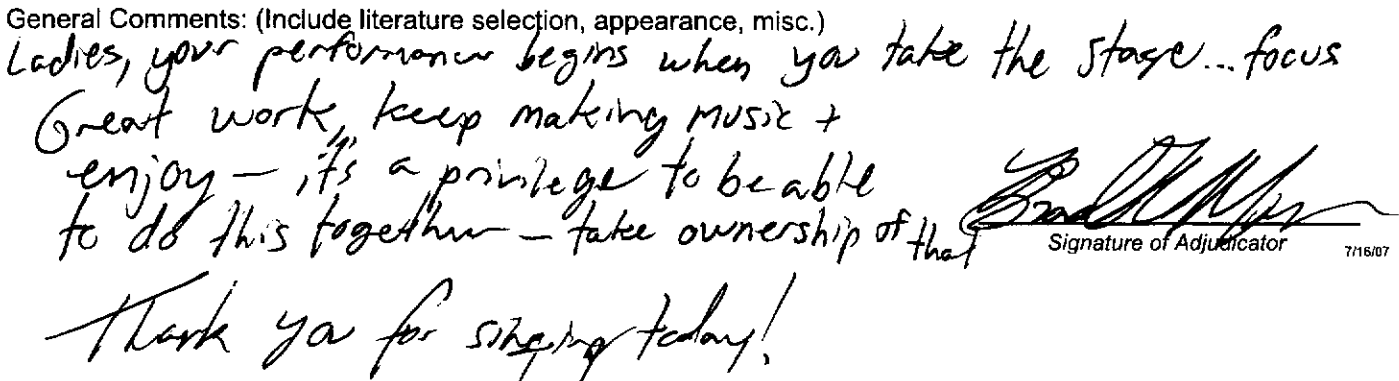 General Comments: (Include literature selection, appearance, misc.)
Ladies, your performance begins when you take the stage... focus
Great work, keep making music +
enjoy – it's a privilege to be able
to do this together – take ownership of that
Signature of Adjudicator 7/16/07
Thank you for singing today!